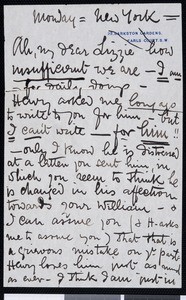 Monday = New York =
BARKSTON GARDENS,
EARLS COURT, S.W.
Ah, my dear Lizzie - how
insufficient we are - I am
Henry asked me long ago
to write to you for him - but
I can't write - for him!!
- only I know he is distressed
at a letter you sent him, in
which you seem to think he
is changed in his affection
towards your William =
I can assure you (& H. asks
me to assure you) that that is
a grievous mistake on yr part
Henry loves him just as much
as ever - I think I am just in